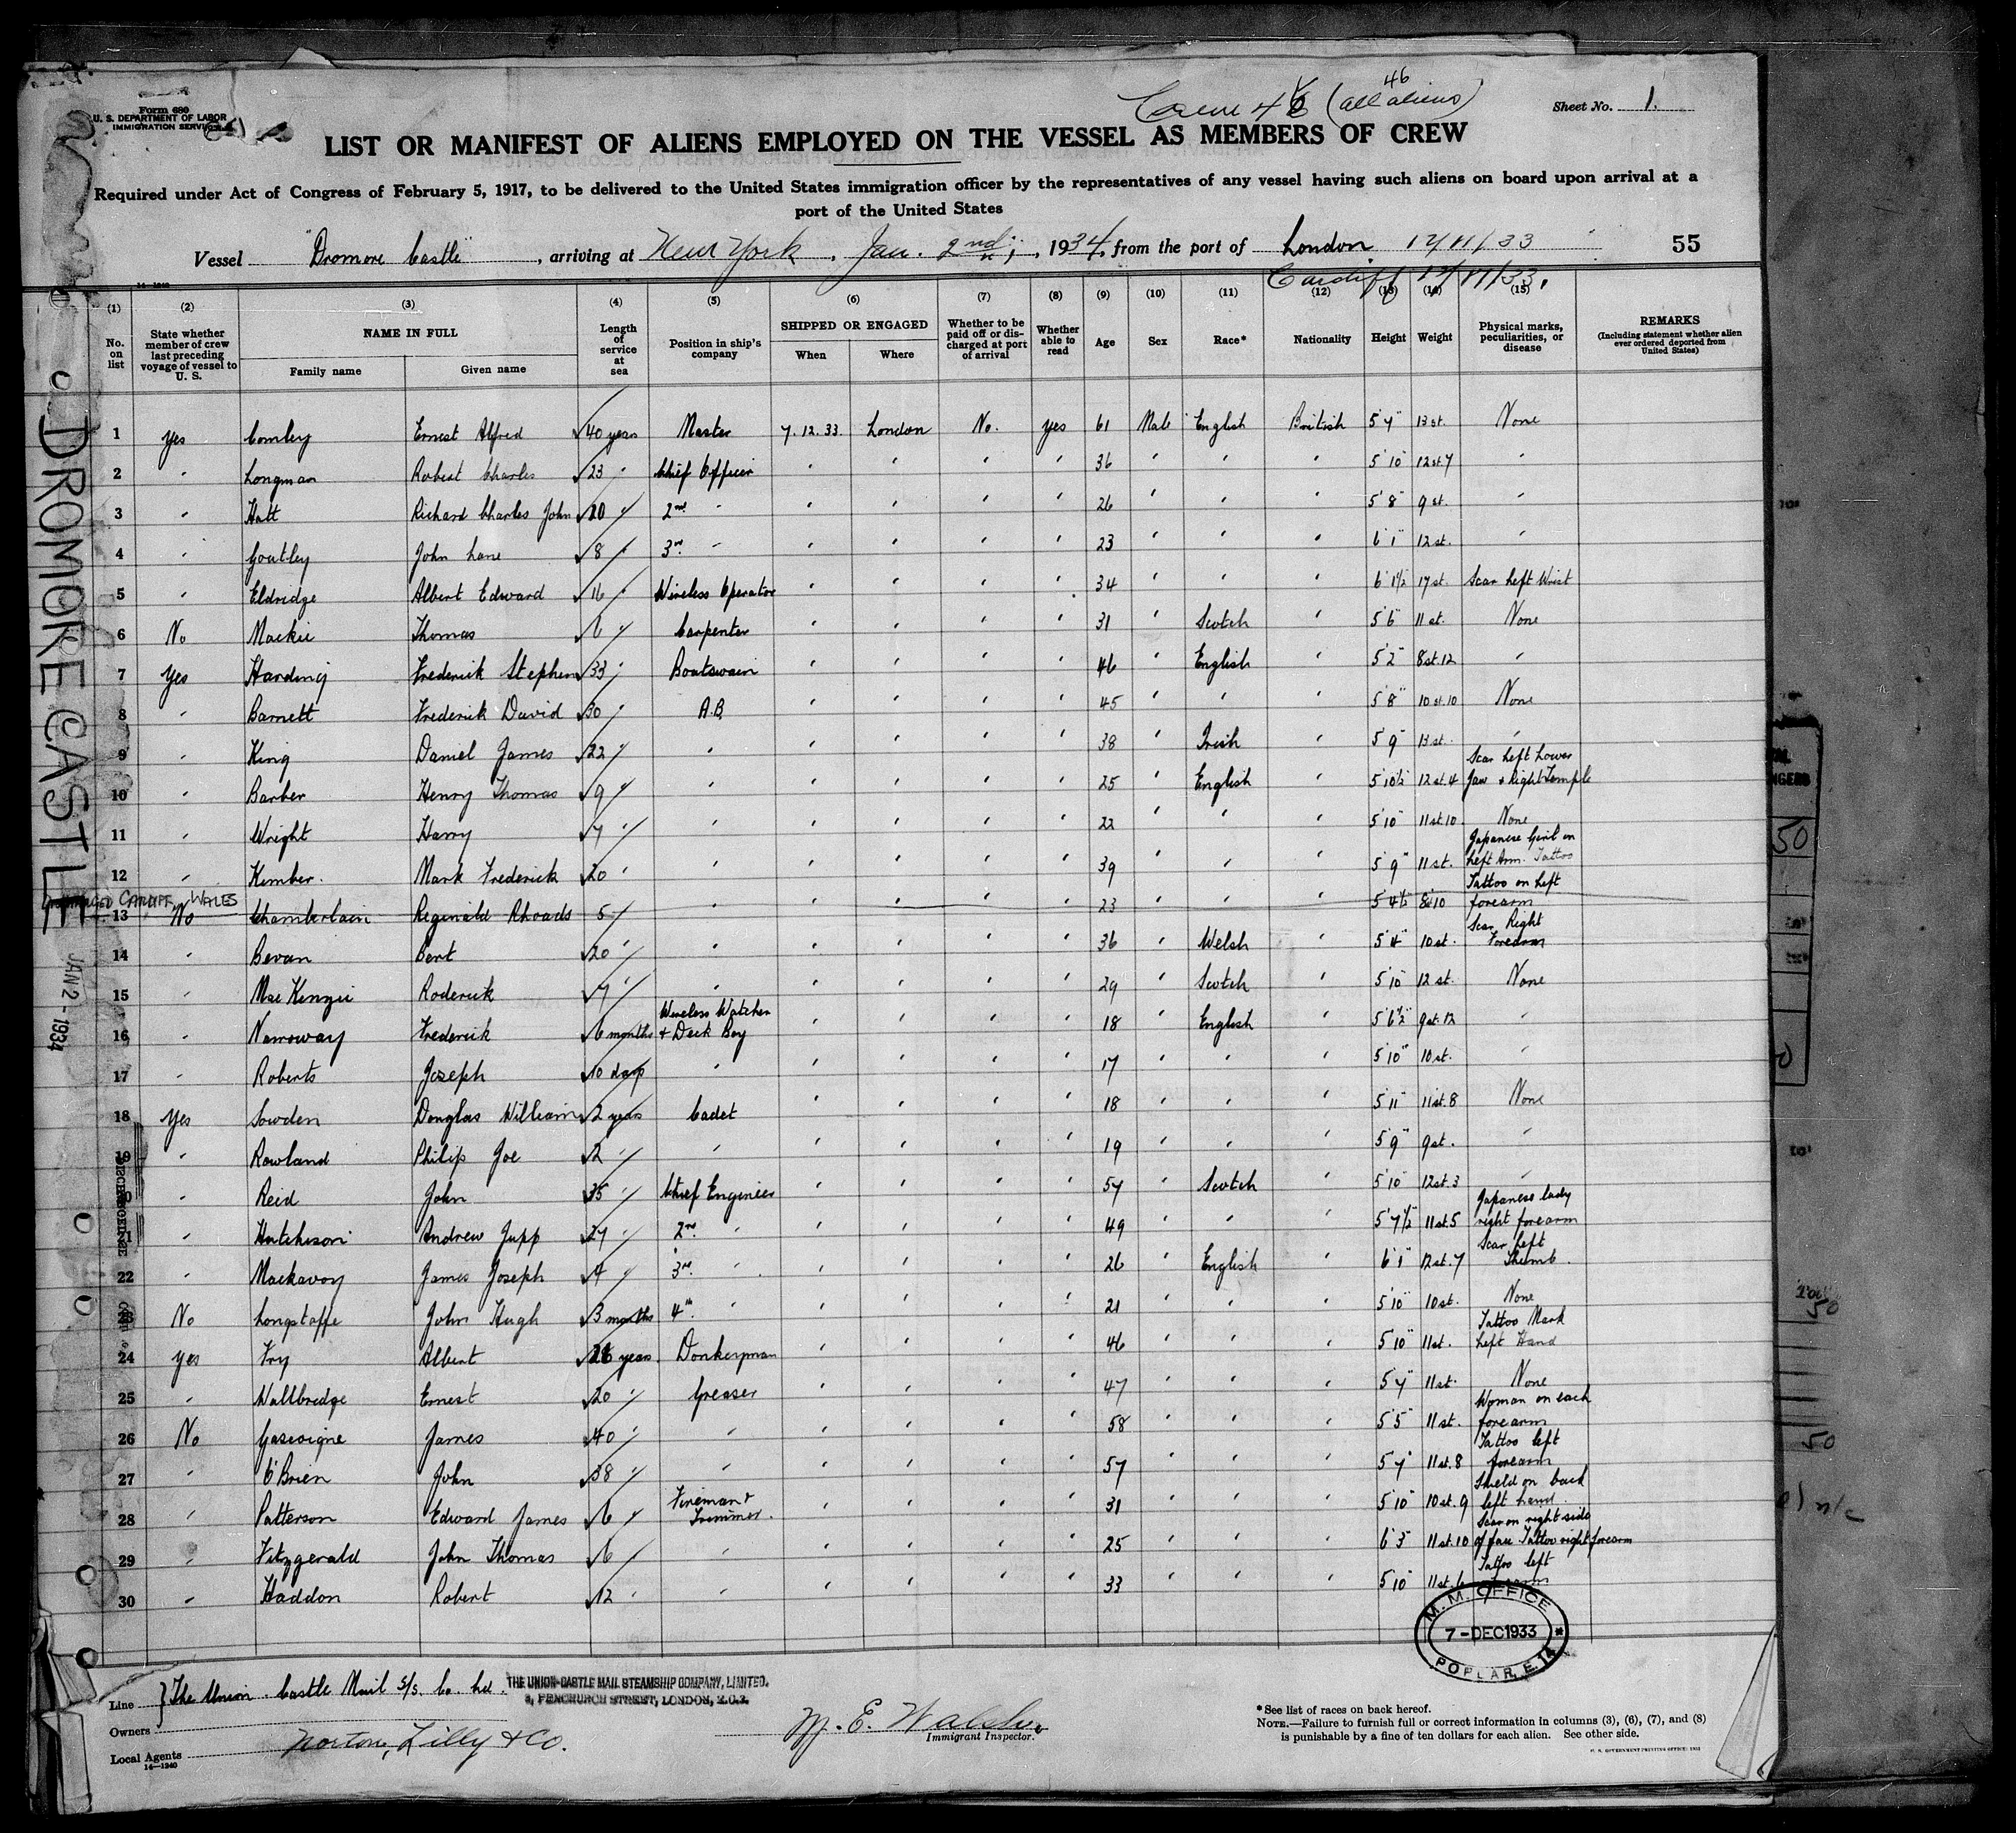 Form 680
U. S. DEPARTMENT OF LABOR
IMMIGRATION SERVICE
46
Crew 46 (all aliens)
Sheet No. 1.
LIST OR MANIFEST OF ALIENS EMPLOYED ON THE VESSEL AS MEMBERS OF CREW
Required under Act of Congress of February 5, 1917, to be delivered to the United States immigration officer by the representatives of any vessel having such aliens on board upon arrival at a
port of the United States
Vessel "Dromore Castle", arriving at New York, Jan. 2nd, 1934, from the port of London 12/11/33 55
Cardiff 12/11/33.
(1) (2) (3) (4) (5) (6) (7) (8) (9) (10) (11) (12) (13) (14) (15)
No. on list State whether member of crew last preceding voyage of vessel to U. S. NAME IN FULL Family name Given name Length of service at sea Position in ship's company SHIPPED OR ENGAGED When Where Whether to be paid off or discharged at port of arrival Whether able to read Age Sex Race* Nationality Height Weight Physical marks, peculiarities, or disease REMARKS (Including statement whether alien ever ordered deported from United States)
1 Yes Comley Ernest Alfred 40 years Master 7.12.33. London No. Yes 61 Male English British 5'7" 13st. None
2 " Longman Robert Charles 23 " Chief Officer " " " " 36 " " " 5'10" 12st.7 "
3 " Hatt Richard Charles John 10 " 2nd. " " " " " 26 " " " 5'8" 9st. "
4 " Goutley John Lane 8 " 3rd. " " " " " 23 " " " 6'1" 12st. "
5 " Eldridge Albert Edward 16 " Wireless Operator " " " " 34 " " " 6'1½ 17st. Scar Left Wrist
6 No Mackie Thomas 6 " Carpenter " " " " 31 " Scotch " 5'6" 11st. None
7 Yes Harding Frederick Stephen 33 " Boatswain " " " " 46 " English " 5'2" 8st.12 "
8 " Barnett Frederick David 30 " A.B. " " " " 45 " " " 5'8" 10st.10 None
9 " King Daniel James 22 " " " " " " 38 " Irish " 5'9" 13st. "
10 " Barber Henry Thomas 9 " " " " " " 25 " English " 5'10½ 12st.4 Scar Left Lower Jaw & Right Temple
11 " Wright Harry 7 " " " " " " 22 " " " 5'10" 11st.10 None
12 " Kimber. Mark Frederick 20 " " " " " " 39 " " " 5'9" 11st. Japanese Girl on Left Arm. Tattoo
CARDIFF WALES
13 No Chamberlain Reginald Rhoads 5 " " " " " " 23 " " " 5'4½ 8st10 Tattoo on Left forearm
14 " Bevan Bert 20 " " " " " " 36 " Welsh " 5'4" 10st. Scar Right Forearm
15 " MacKenzie Roderick 7 " " " " " " 29 " Scotch " 5'10 12st. None
16 " Narroway Frederick 6 months Wireless Watcher & Deck Boy " " " " 18 " English " 5'6½" 9st.12 "
17 " Roberts Joseph 10 days " " " " " 17 " " " 5'10" 10st. "
18 Yes Sowden Douglas William 2 years Cadet " " " " 18 " " " 5'11" 11st.8 None
19 " Rowland Philip Joe 2 " " " " " " 19 " " " 5'9" 9st. "
20 " Reid John 35 " Chief Engineer " " " " 57 " Scotch " 5'10" 12st.3 "
21 " Hutchison Andrew Jupp 27 " 2nd. " " " " " 49 " " " 5'7½" 11st.5 Japanese lady right forearm
22 " Mackavoy James Joseph 4 " 3rd. " " " " " 26 " English " 6'1" 12st.7 Scar Left Thumb.
23 No Longstaffe John Hugh 3 months 4th " " " " " 21 " " " 5'10" 10st. None
24 Yes Fry Albert 26 years. Donkeyman " " " " 46 " " " 5'10" 11st. Tattoo Mark Left Hand
25 " Wallbridge Ernest 20 " Greaser " " " " 47 " " " 5'7" 11st. None
26 No Gascoigne James 40 " " " " " " 58 " " " 5'5" 11st. Woman on each forearm
27 " O'Brien John 38 " " " " " " 57 " " " 5'7" 11st.8 Tattoo left forearm
28 " Patterson Edward James 6 " Fireman & Trimmer. " " " " 31 " " " 5'10" 10st.9 Shield on back left hand.
29 " Fitzgerald John Thomas 6 " " " " " " 25 " " " 6'3" 11st.10 Scar on right side of face Tattoo right forearm
30 " Haddon Robert 12 " " " " " " 33 " " " 5'10" 11st.6 Tattoo left forearm
DROMORE CASTLE
JAN 2 - 1934
M. M. OFFICE
7-DEC1933
POPLAR, E.14
Line } The Union Castle Mail S/S. Co. Ltd.
Owners
THE UNION-CASTLE MAIL STEAMSHIP COMPANY, LIMITED.
3, FENCHURCH STREET, LONDON, E.C.3.
Local Agents Norton, Lilly & Co.
14—1240
M. E. Walsh
Immigrant Inspector.
*See list of races on back hereof.
NOTE.—Failure to furnish full or correct information in columns (3), (6), (7), and (8)
is punishable by a fine of ten dollars for each alien. See other side.
U. S. GOVERNMENT PRINTING OFFICE: 1932
50
50
50